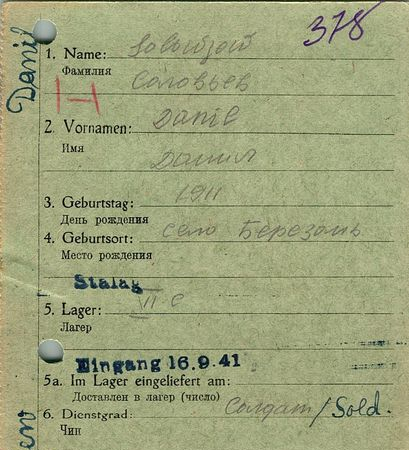 378
Danil
1. Name: Solowjew
Фамилия Соловьев
2. Vornamen: Danil
Имя Данил
3. Geburtstag: 1911
День рождения
4. Geburtsort: село Березань
Место рождения
Stalag
5. Lager: VI C
Лагер
Eingang 16.9.41
5a. Im Lager eingeliefert am:
Доставлен в лагер (число)
6. Dienstgrad: Солдат / Sold.
Чин